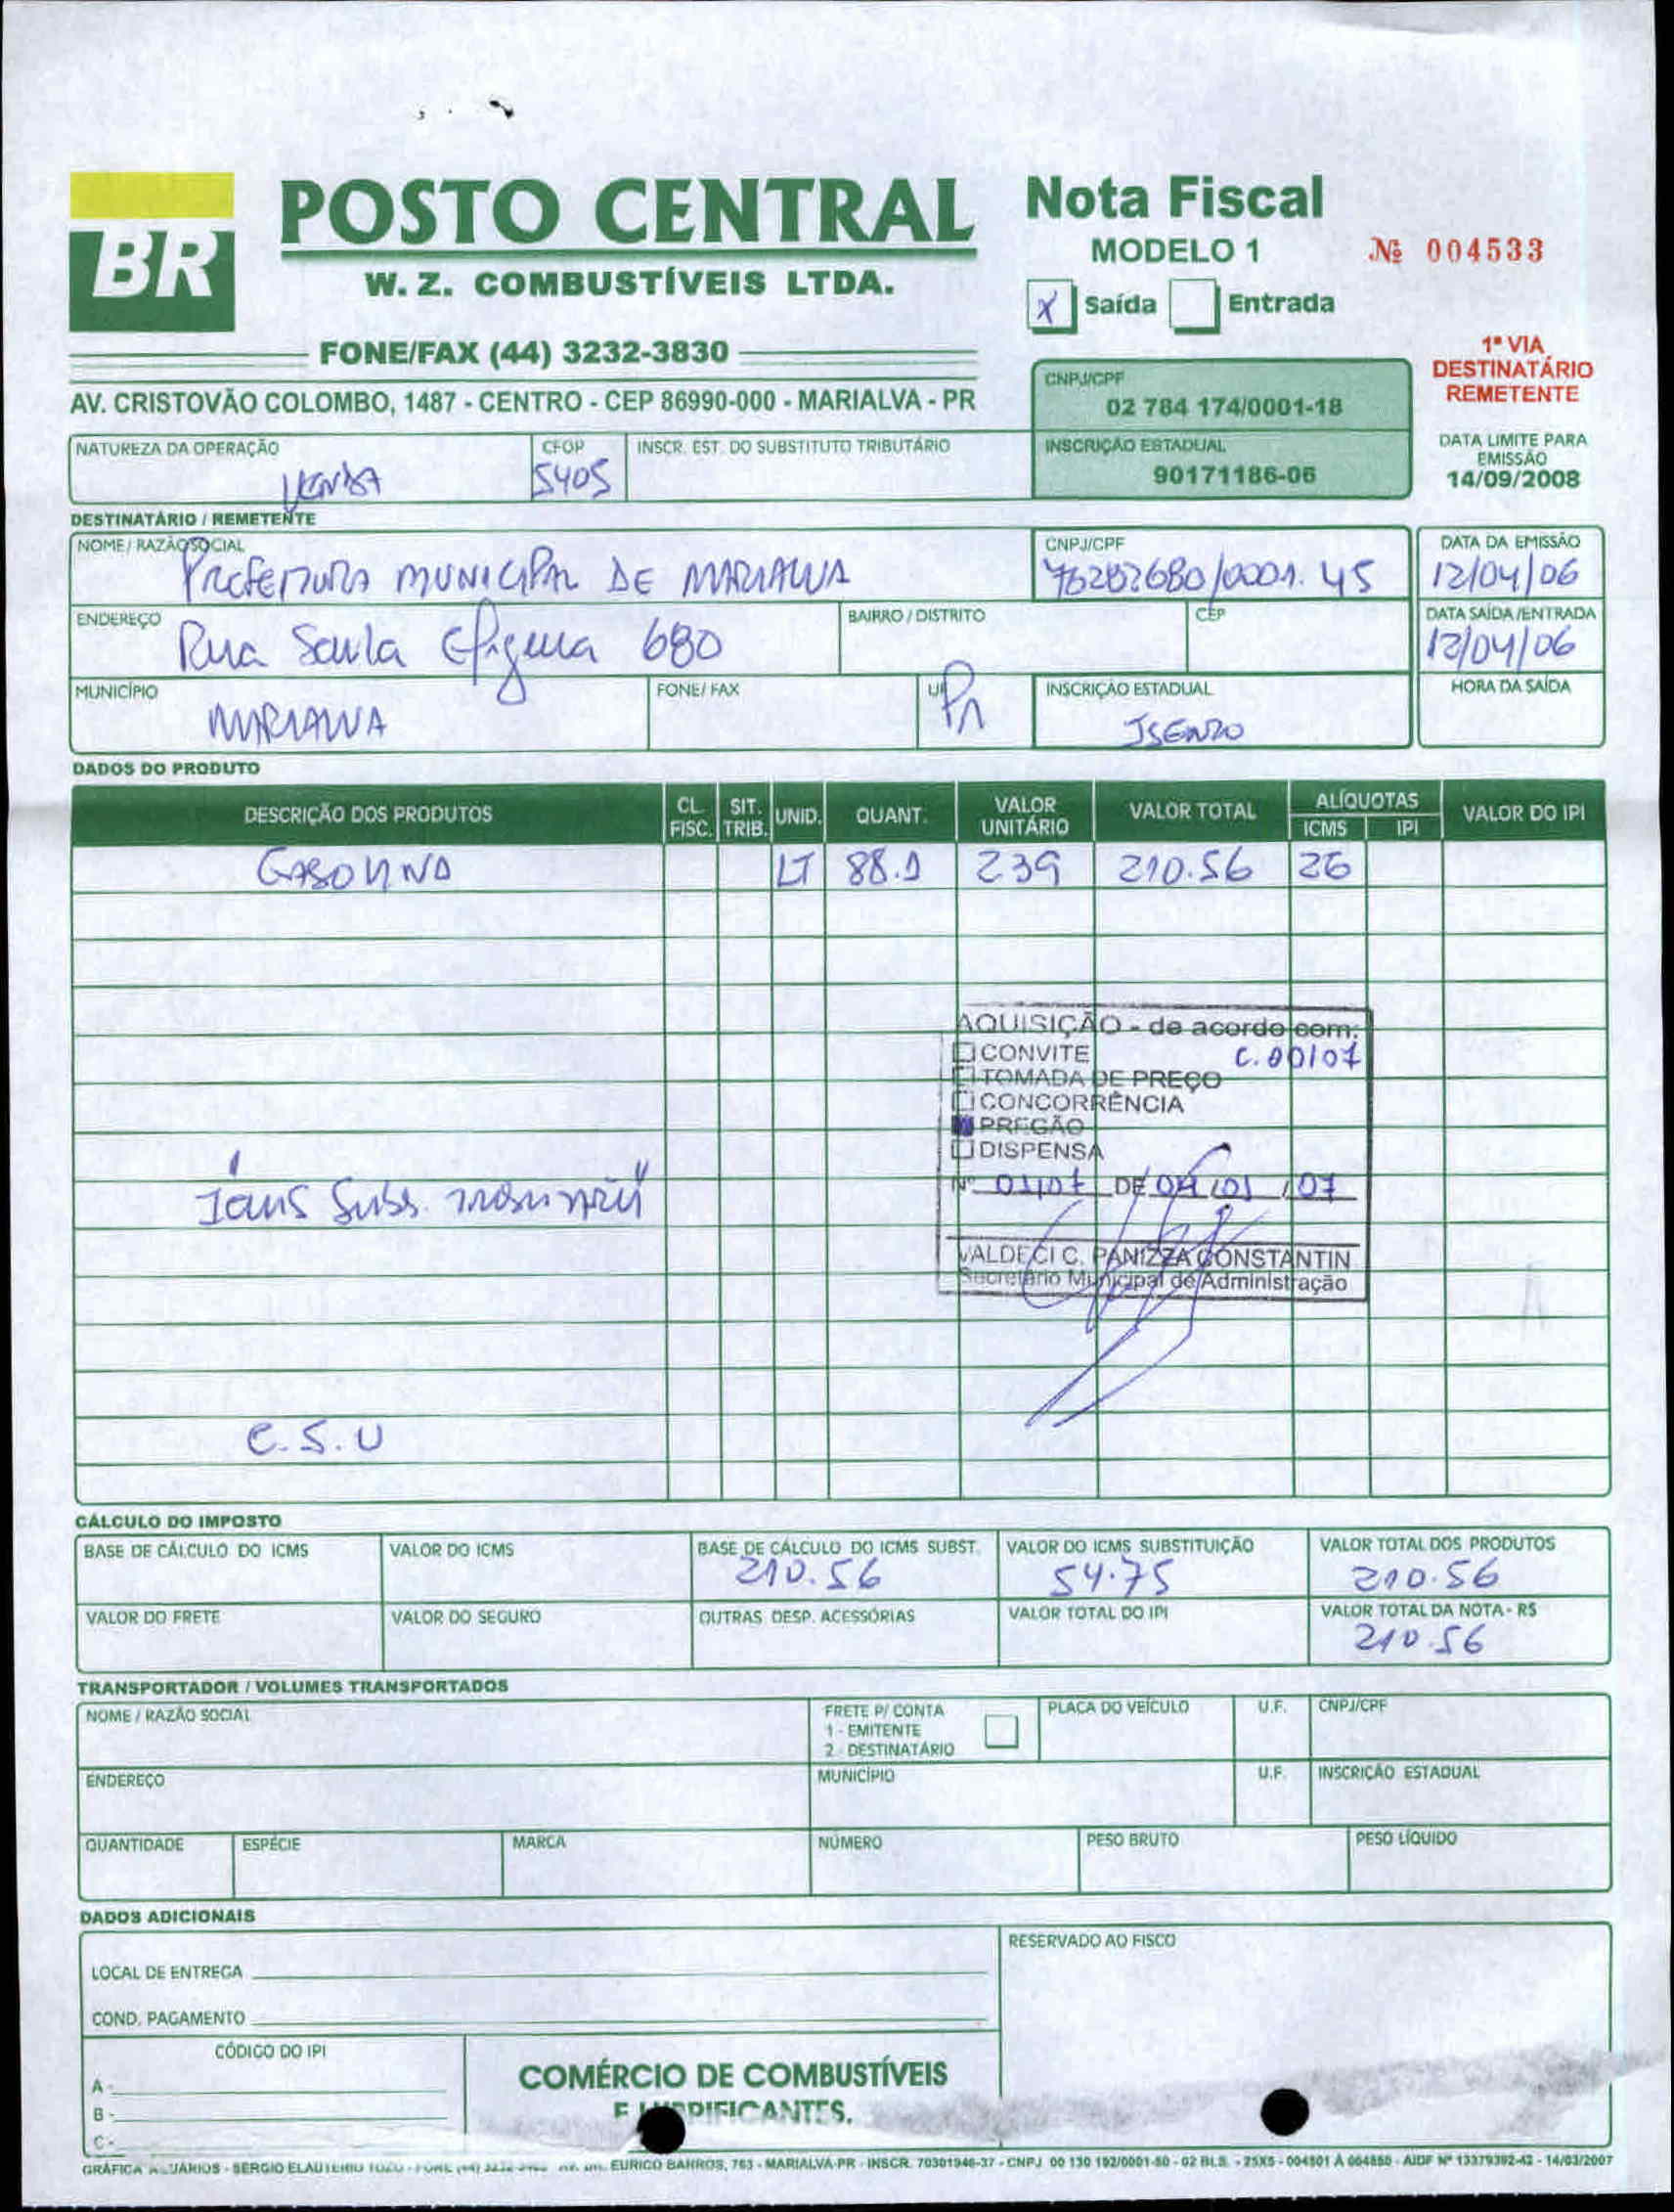 BR
POSTO CENTRAL
W. Z. COMBUSTÍVEIS LTDA.
FONE/FAX (44) 3232-3830
AV. CRISTOVÃO COLOMBO, 1487 - CENTRO - CEP 86990-000 - MARIALVA - PR
Nota Fiscal
MODELO 1
Nº 004533
X Saída Entrada
1ª VIA
DESTINATÁRIO
REMETENTE
CNPJ/CPF
02 784 174/0001-18
INSCRIÇÃO ESTADUAL
90171186-06
DATA LIMITE PARA
EMISSÃO
14/09/2008
NATUREZA DA OPERAÇÃO CFOP INSCR. EST. DO SUBSTITUTO TRIBUTÁRIO
VENDA 5405
DESTINATÁRIO / REMETENTE
NOME / RAZÃO SOCIAL CNPJ/CPF DATA DA EMISSÃO
PREFEITURA MUNICIPAL DE MARIALVA 76282680/0001.45 12/04/06
ENDEREÇO BAIRRO / DISTRITO CEP DATA SAÍDA/ENTRADA
Rua Santa Efigenia 680 12/04/06
MUNICÍPIO FONE / FAX UF INSCRIÇÃO ESTADUAL HORA DA SAÍDA
MARIALVA PR ISENTO
DADOS DO PRODUTO
DESCRIÇÃO DOS PRODUTOS CL. FISC. SIT. TRIB. UNID. QUANT. VALOR UNITÁRIO VALOR TOTAL ALÍQUOTAS ICMS IPI VALOR DO IPI
GASOLINA LT 88.1 239 210.56 26
AQUISIÇÃO - de acordo com:
CONVITE C. 00/07
TOMADA DE PREÇO
CONCORRÊNCIA
PREGÃO
DISPENSA
Nº 01/07 DE 04/01/07
Subs.
VALDECI C. PANIZZA CONSTANTIN
Secretário Municipal de Administração
C.S.U
CÁLCULO DO IMPOSTO
BASE DE CÁLCULO DO ICMS VALOR DO ICMS BASE DE CÁLCULO DO ICMS SUBST. VALOR DO ICMS SUBSTITUIÇÃO VALOR TOTAL DOS PRODUTOS
210.56 54.75 210.56
VALOR DO FRETE VALOR DO SEGURO OUTRAS DESP. ACESSÓRIAS VALOR TOTAL DO IPI VALOR TOTAL DA NOTA - R$
210.56
TRANSPORTADOR / VOLUMES TRANSPORTADOS
NOME / RAZÃO SOCIAL FRETE P/ CONTA PLACA DO VEÍCULO U.F. CNPJ/CPF
1 - EMITENTE
2 - DESTINATÁRIO
ENDEREÇO MUNICÍPIO U.F. INSCRIÇÃO ESTADUAL
QUANTIDADE ESPÉCIE MARCA NÚMERO PESO BRUTO PESO LÍQUIDO
DADOS ADICIONAIS
RESERVADO AO FISCO
LOCAL DE ENTREGA
COND. PAGAMENTO
CÓDIGO DO IPI
A -
B -
C -
COMÉRCIO DE COMBUSTÍVEIS
E LUBRIFICANTES.
GRÁFICA SERGIO ELAUTERIO EURICO BARROS, 763 - MARIALVA-PR - INSCR. 70301946-37 - CNPJ 00 130 192/0001-80 - 02 BLS. - 25X5 - 004801 À 004850 - AIDF Nº 13379392-42 - 14/03/2007